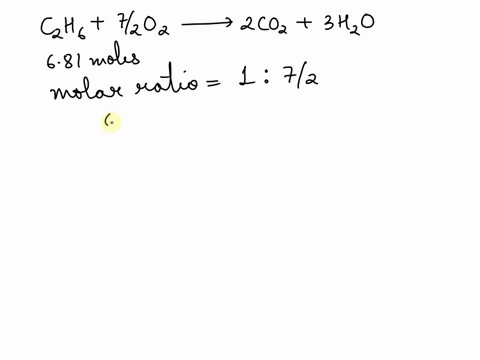 C₂H₆ + 7/2O₂ ⟶ 2CO₂ + 3H₂O
6.81 moles
molar ratio = 1 : 7/2
(